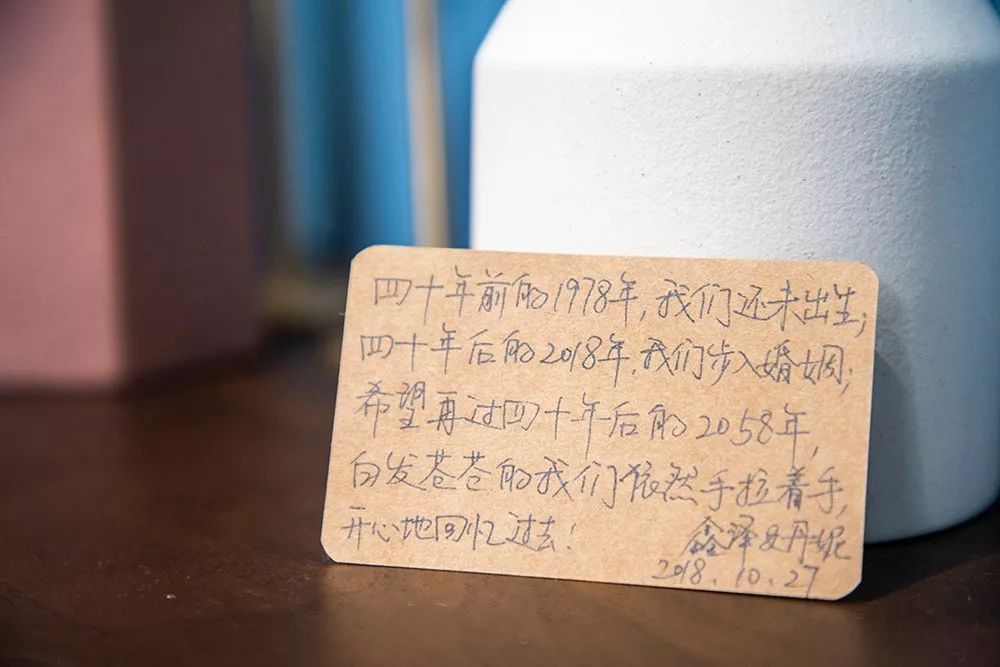 四十年前的1978年,我们还未出生;
四十年后的2018年,我们步入婚姻;
希望再过四十年后的2058年,
白发苍苍的我们依然手拉着手,
开心地回忆过去!
鑫泽&丹妮
2018.10.27